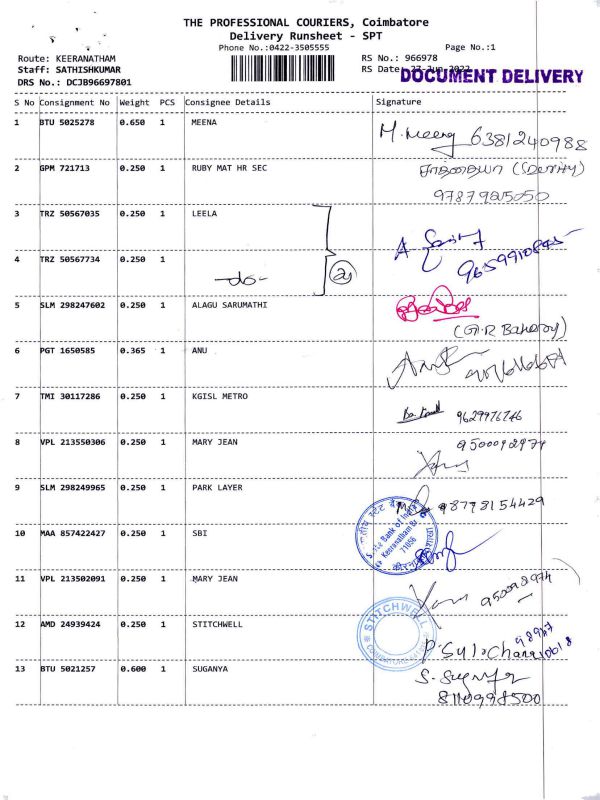 THE PROFESSIONAL COURIERS, Coimbatore
Delivery Runsheet - SPT
Phone No.:0422-3505555
Page No.:1
Route: KEERANATHAM
RS No.: 966978
Staff: SATHISHKUMAR
RS Date: 27-Jun-2022
DOCUMENT DELIVERY
DRS No.: DCJB96697801
S No Consignment No Weight PCS Consignee Details Signature
1 BTU 5025278 0.650 1 MEENA M. Meena 6381240988
2 GPM 721713 0.250 1 RUBY MAT HR SEC
9787985050
3 TRZ 50567035 0.250 1 LEELA
4 TRZ 50567734 0.250 1
-do- 2
5 SLM 298247602 0.250 1 ALAGU SARUMATHI
6 PGT 1650585 0.365 1 ANU
7 TMI 30117286 0.250 1 KGISL METRO 9629976746
8 VPL 213550306 0.250 1 MARY JEAN 9500092974
9 SLM 298249965 0.250 1 PARK LAYER 98778154429
10 MAA 857422427 0.250 1 SBI
State Bank of India
Keeranatham Br
71056
11 VPL 213502091 0.250 1 MARY JEAN
12 AMD 24939424 0.250 1 STITCHWELL
STITCHWELL
P. Sulochana
13 BTU 5021257 0.600 1 SUGANYA S. Suganya
8110998500